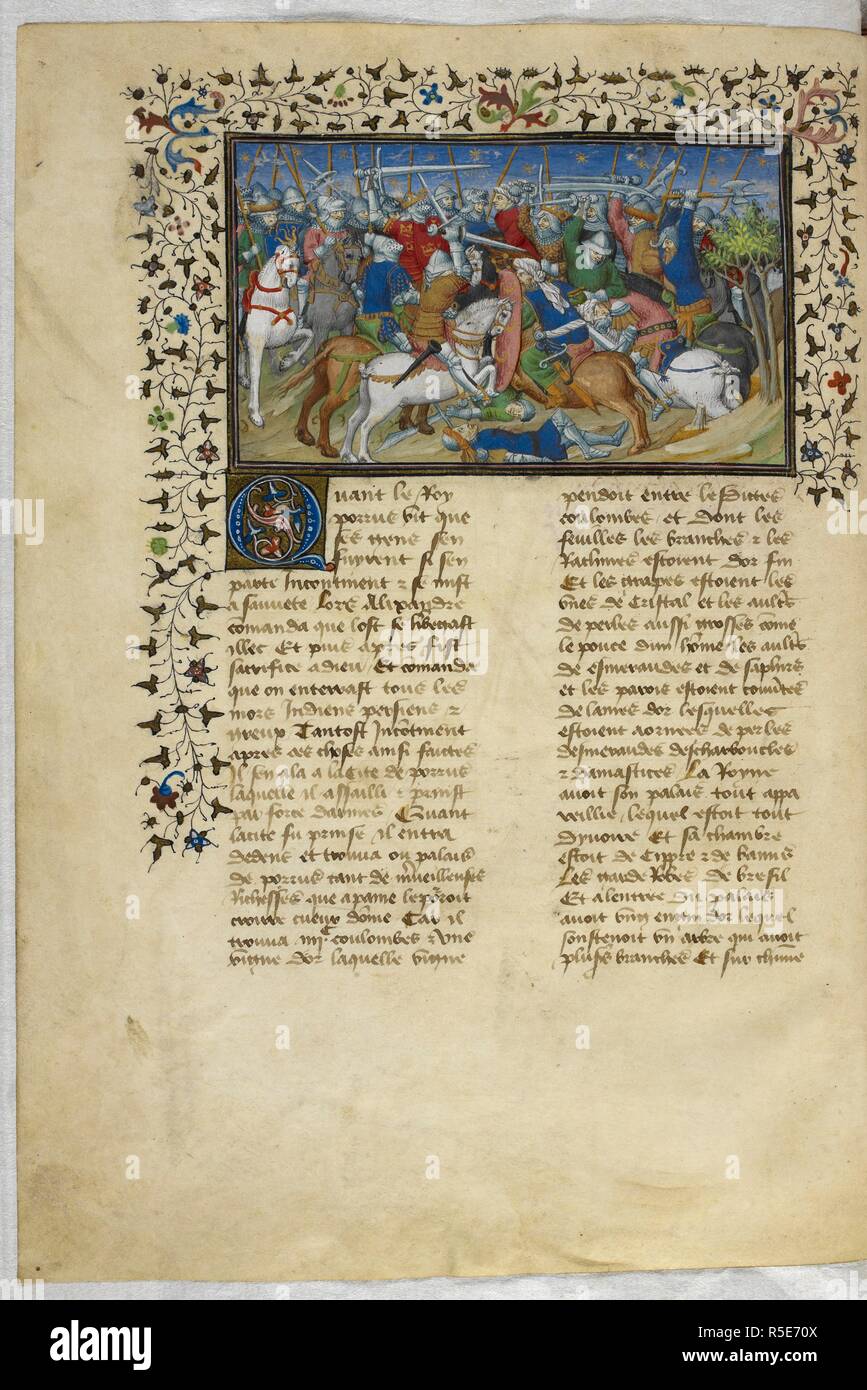 Quant le Roy
porrus vit que
ses gens sen
fuyrent si sen
party Incontinent & se mist
a sauvete Lors Alixandre
comanda que lost se hbergast
illec Et puis apres fist
sacrifice a dieu Et comanda
que on enterrast tous les
mors Indiens persiens &
greux Tantost Incotinent
apres ces choses ainsi faictes
Il sen ala a la cite de porrus
laquelle il assailli & prinst
par force darmes Quant
la cite fu prinse il entra
dedens et trouva ou palais
de porrus tant de mveilleuses
Richesses que a paine le porroit
croire cueur dome Car il
trouva iiijc coulombes & vne
vigne dor laquelle vigne
pendoit entre lesdictes
coulombes et dont les
feuilles les branches & les
Rachines estoient dor fin
Et les grapes estoient les
vnes de cristal et les aultes
de perles aussi grosses come
le pouce dun home les aultes
de esmeraudes et de saphirs
et les parois estoient couvtes
de lames dor lesquelles
estoient aornees de perles
desmeraudes descharboucles
& damastices La Royne
avoit son palais tout appa
reillie lequel estoit tout
dyvoire Et sa chambre
estoit de Cippre & de
Les garde Robes de bresil
Et a lentree du palais
avoit vng engin dor lequel
soustenoit vn arbre qui avoit
plusrs branches Et sur chune
alamy
a
Image ID: R5E70X
www.alamy.com